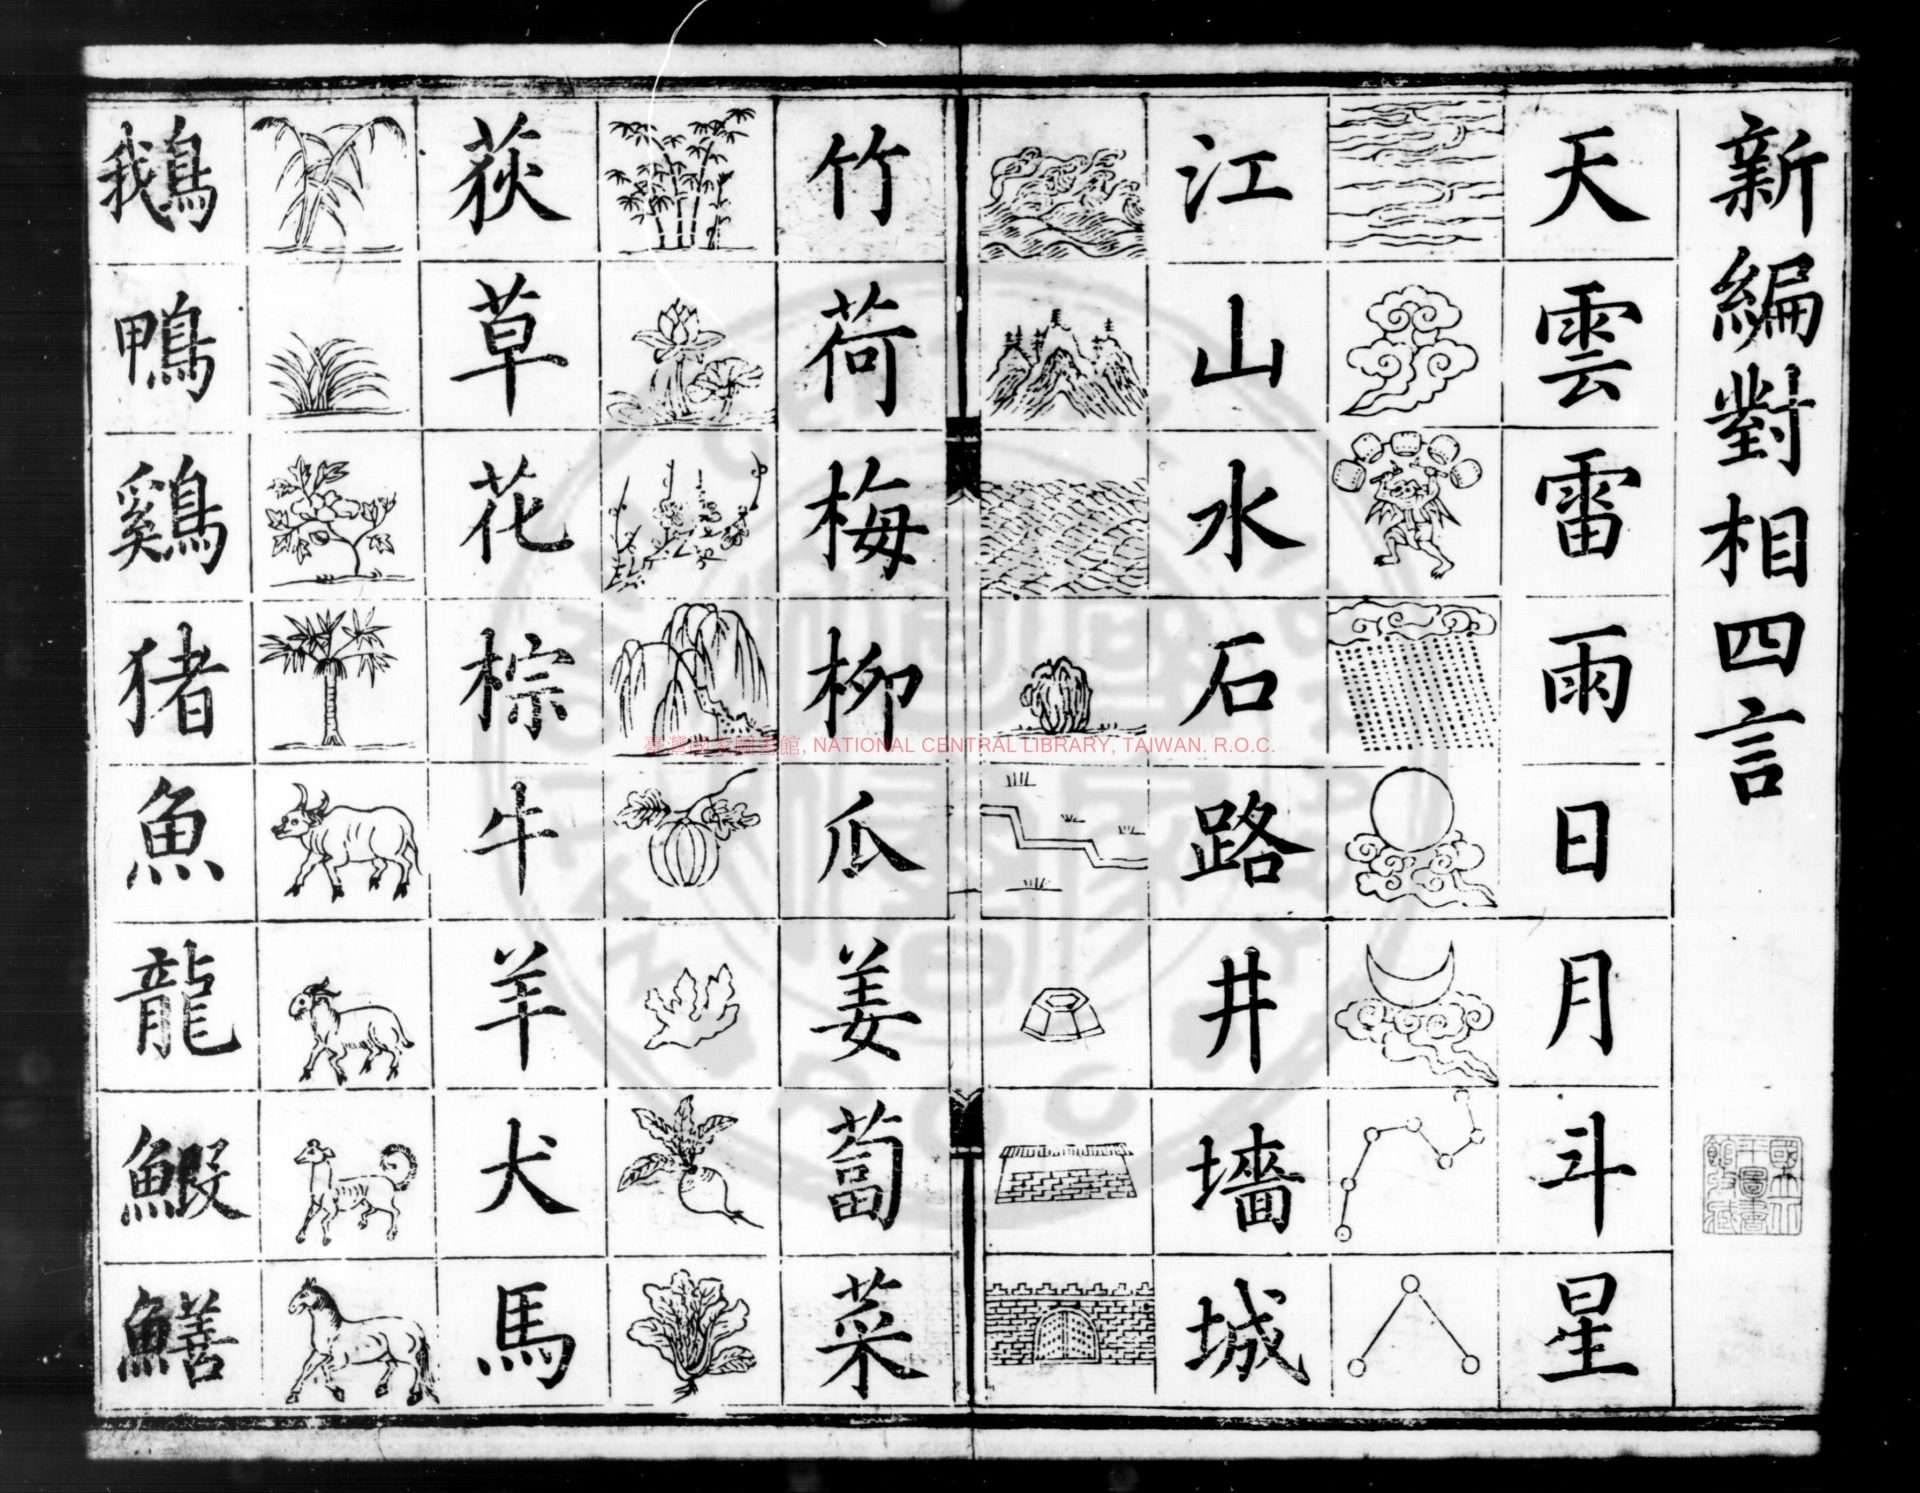 新編對相四言
天雲雷雨日月斗星
江山水石路井墻城
竹荷梅柳瓜姜蔔菜
荻草花棕牛羊犬馬
鵝鴨鷄猪魚龍鰕鱔
臺灣國家圖書館, NATIONAL CENTRAL LIBRARY, TAIWAN. R.O.C.